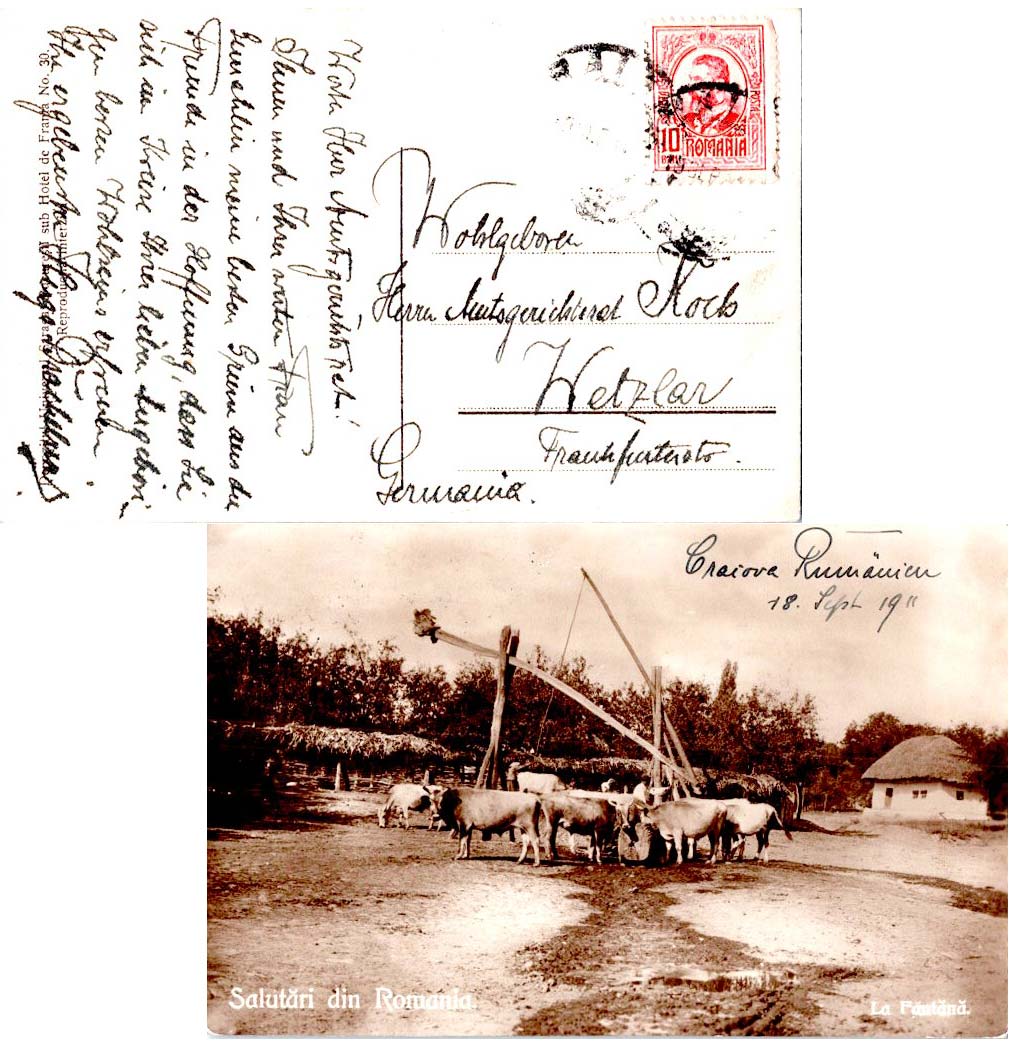 Werter Herr Amtsgerichtsrat!
Ihnen und Ihrer werten Frau
Gemahlin meine besten Grüsse aus der
Fremde in der Hoffnung, dass Sie
sich im Kreise Ihrer lieben Angehöri-
gen besten Wohlseins erfreuen
Ihr ergebenster
sub Hotel de Franța No. 30.
10
BANI
ROMANIA
Wohlgeboren
Herrn Amtsgerichtsrat Koch
Wetzlar
Frankfurterstr.
Germania.
Craiova Rumänien
18. Sept. 1911
Salutări din Romania.
La Fântână.